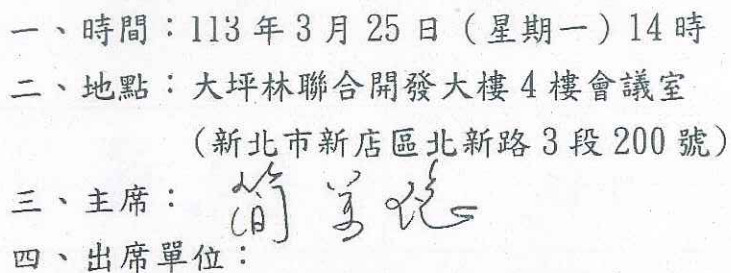 一、時間：113 年 3 月 25 日（星期一）14 時
二、地點：大坪林聯合開發大樓 4 樓會議室
（新北市新店區北新路 3 段 200 號）
三、主席：簡
四、出席單位：